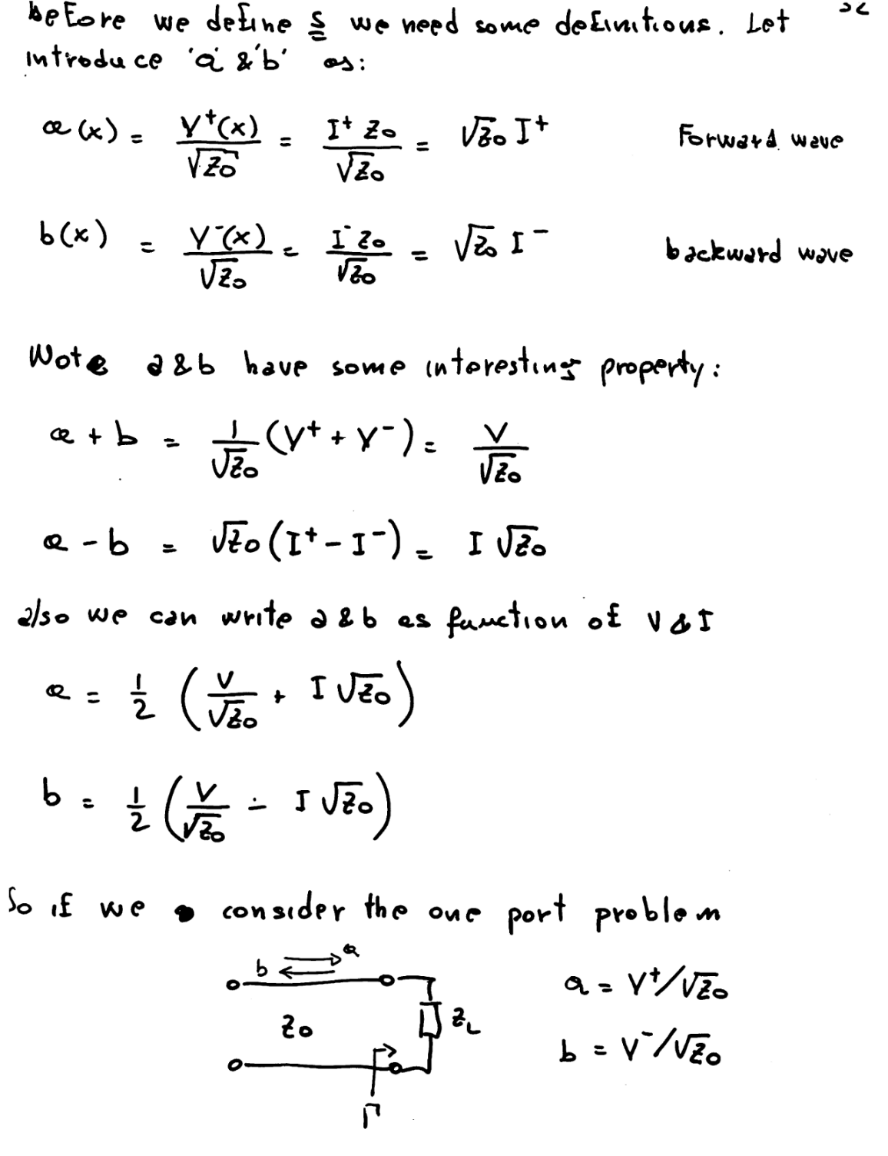 before we define S we need some definitions. Let
introduce 'a' & 'b' as:
a(x) = V⁺(x)/√Z₀ = I⁺ Z₀/√Z₀ = √Z₀ I⁺ Forward wave
b(x) = V⁻(x)/√Z₀ = I⁻ Z₀/√Z₀ = √Z₀ I⁻ backward wave
Note a & b have some interesting property:
a + b = 1/√Z₀ (V⁺ + V⁻) = V/√Z₀
a - b = √Z₀ (I⁺ - I⁻) = I √Z₀
also we can write a & b as function of V & I
a = 1/2 (V/√Z₀ + I √Z₀)
b = 1/2 (V/√Z₀ - I √Z₀)
So if we consider the one port problem
b a
Z₀ Z_L
Γ
a = V⁺/√Z₀
b = V⁻/√Z₀